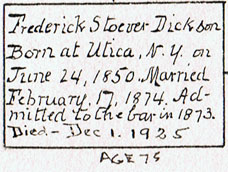 Frederick Stoever Dickson
Born at Utica, N.Y. on
June 24, 1850. Married
February, 17, 1874. Ad-
mitted to the bar in 1873.
Died - Dec 1. 1925
AGE 75